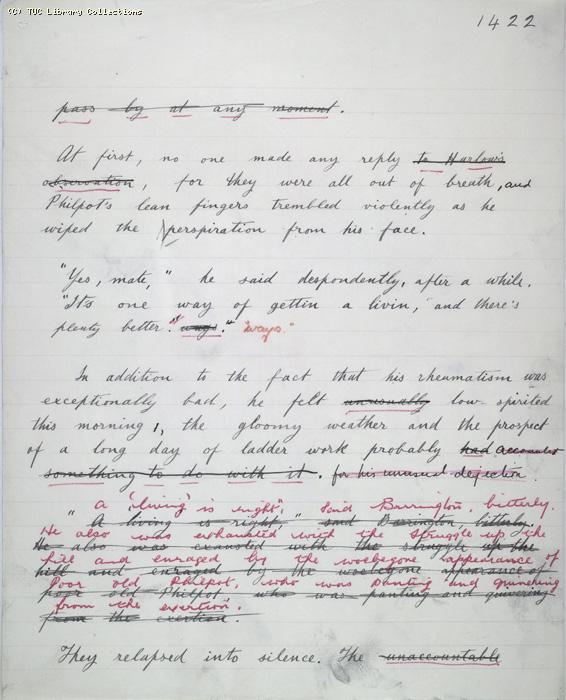 (C) TUC Library Collections
1422
pass by at any moment.
At first, no one made any reply to Harlow's
observation, for they were all out of breath, and
Philpot's lean fingers trembled violently as he
wiped the perspiration from his face.
"Yes, mate," he said despondently, after a while.
"It's one way of gettin a livin, and there's
plenty better." ways." "ways."
In addition to the fact that his rheumatism was
exceptionally bad, he felt unusually low-spirited
this morning, the gloomy weather and the prospect
of a long day of ladder work probably had accounted
something to do with it. for his unusual dejection.
" A 'living' is right", said Barrington, bitterly.
" A living is right, " said Barrington, bitterly.
He also was exhausted with the struggle up the
He also was exausted with the struggle up the
hill and enraged by the woebegone appearance of
hill and enraged by the woebegone appearance of
Poor old Philpot, who was panting and quivering
poor old Philpot, who was panting and quivering
from the exertion.
from the exertion.
They relapsed into silence. The unaccountable